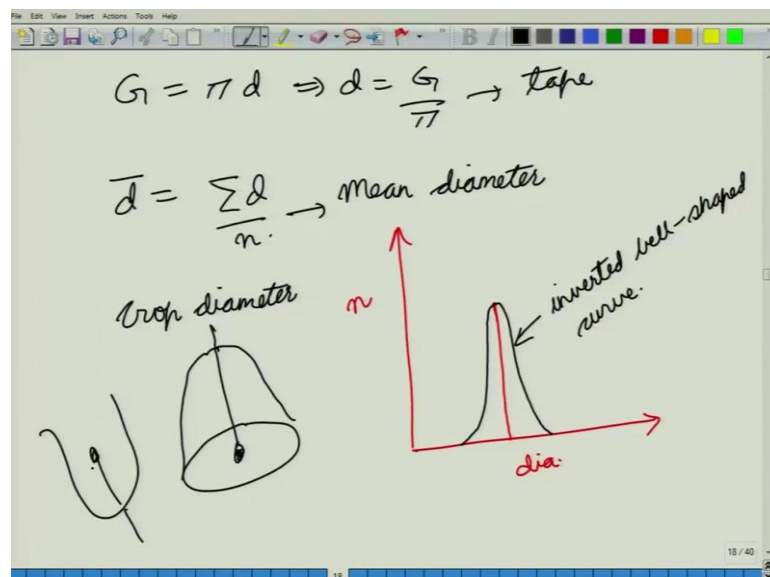 File Edit View Insert Actions Tools Help
B I
G = π d ⇒ d = G/π → tape
d̅ = Σd/n. → Mean diameter
crop diameter
n
inverted bell-shaped
curve.
dia.
18 / 40
18